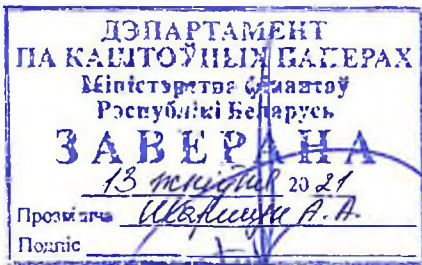 ДЭПАРТАМЕНТ
ПА КАШТОЎНЫХ ПАПЕРАХ
Міністэрства фінансаў
Рэспублікі Беларусь
ЗАВЕРАНА
13 20 21
Прозвішча А.А.
Подпіс